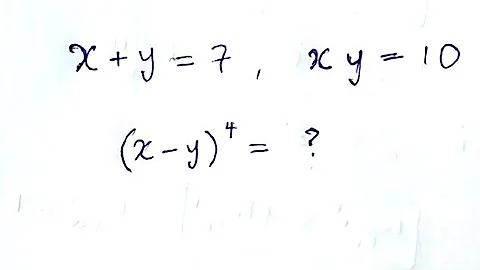 x + y = 7 , x y = 10
(x - y)⁴ = ?